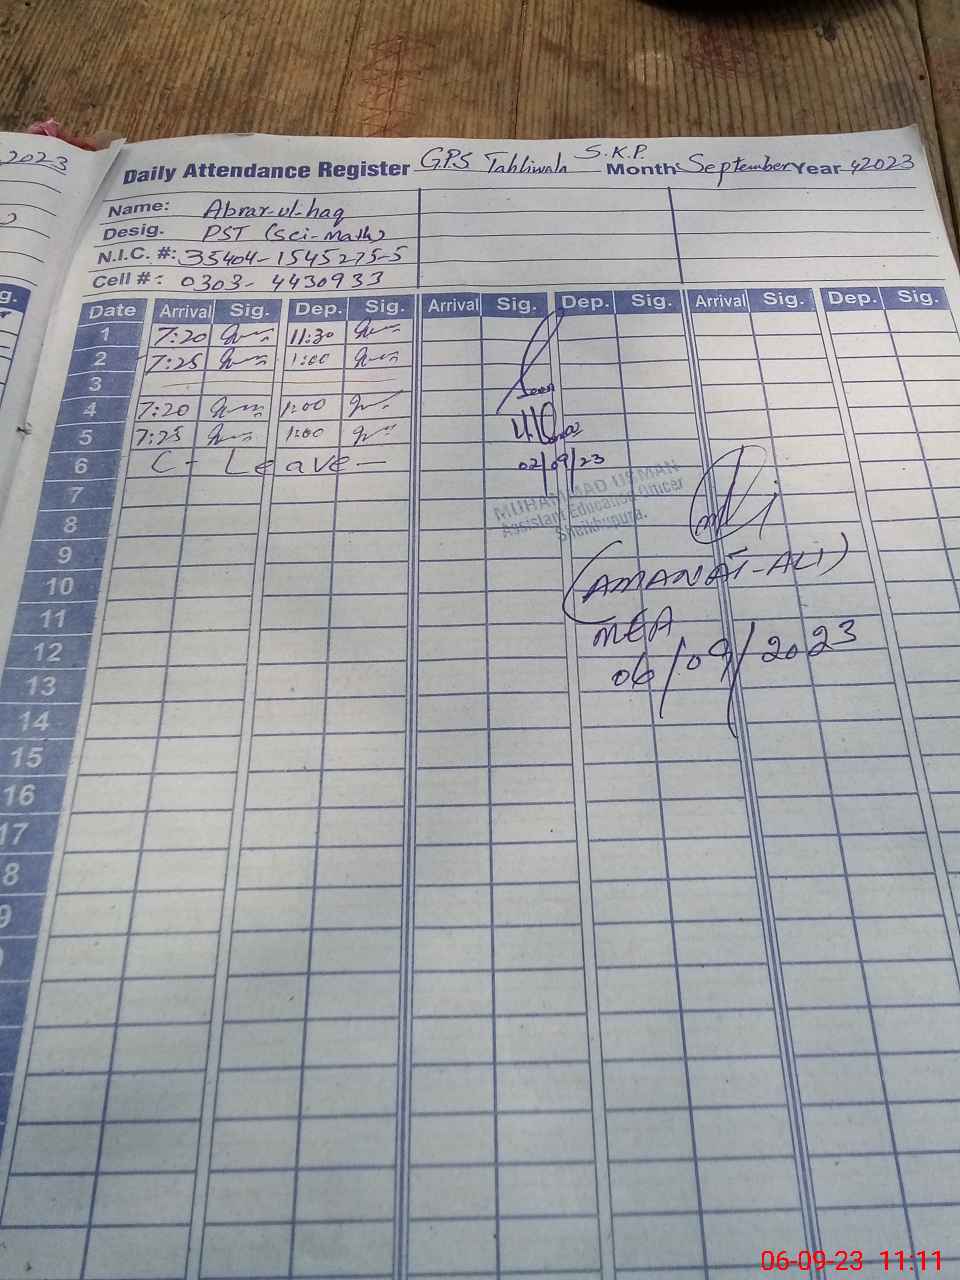 2023
Daily Attendance Register GPS Tahliwala S.K.P. Month September Year 2023
Name: Abrar-ul-haq
Desig. PST (Sci-Math)
N.I.C. #: 35404-1545275-5
Cell #: 0303-4430933
g.
Date Arrival Sig. Dep. Sig. Arrival Sig. Dep. Sig. Arrival Sig. Dep. Sig.
1 7:20 11:30
2 7:25 1:00
3
4 7:20 1:00
5 7:25 1:00
6 C-Leave-
02/09/23
MUHAMMAD USMAN
Assistant Education Officer
Sheikhupura.
7
8
9
(AMANAT-ALI)
10
11
MEA
12
06/09/2023
13
14
15
16
17
8
9
06-09-23 11:11